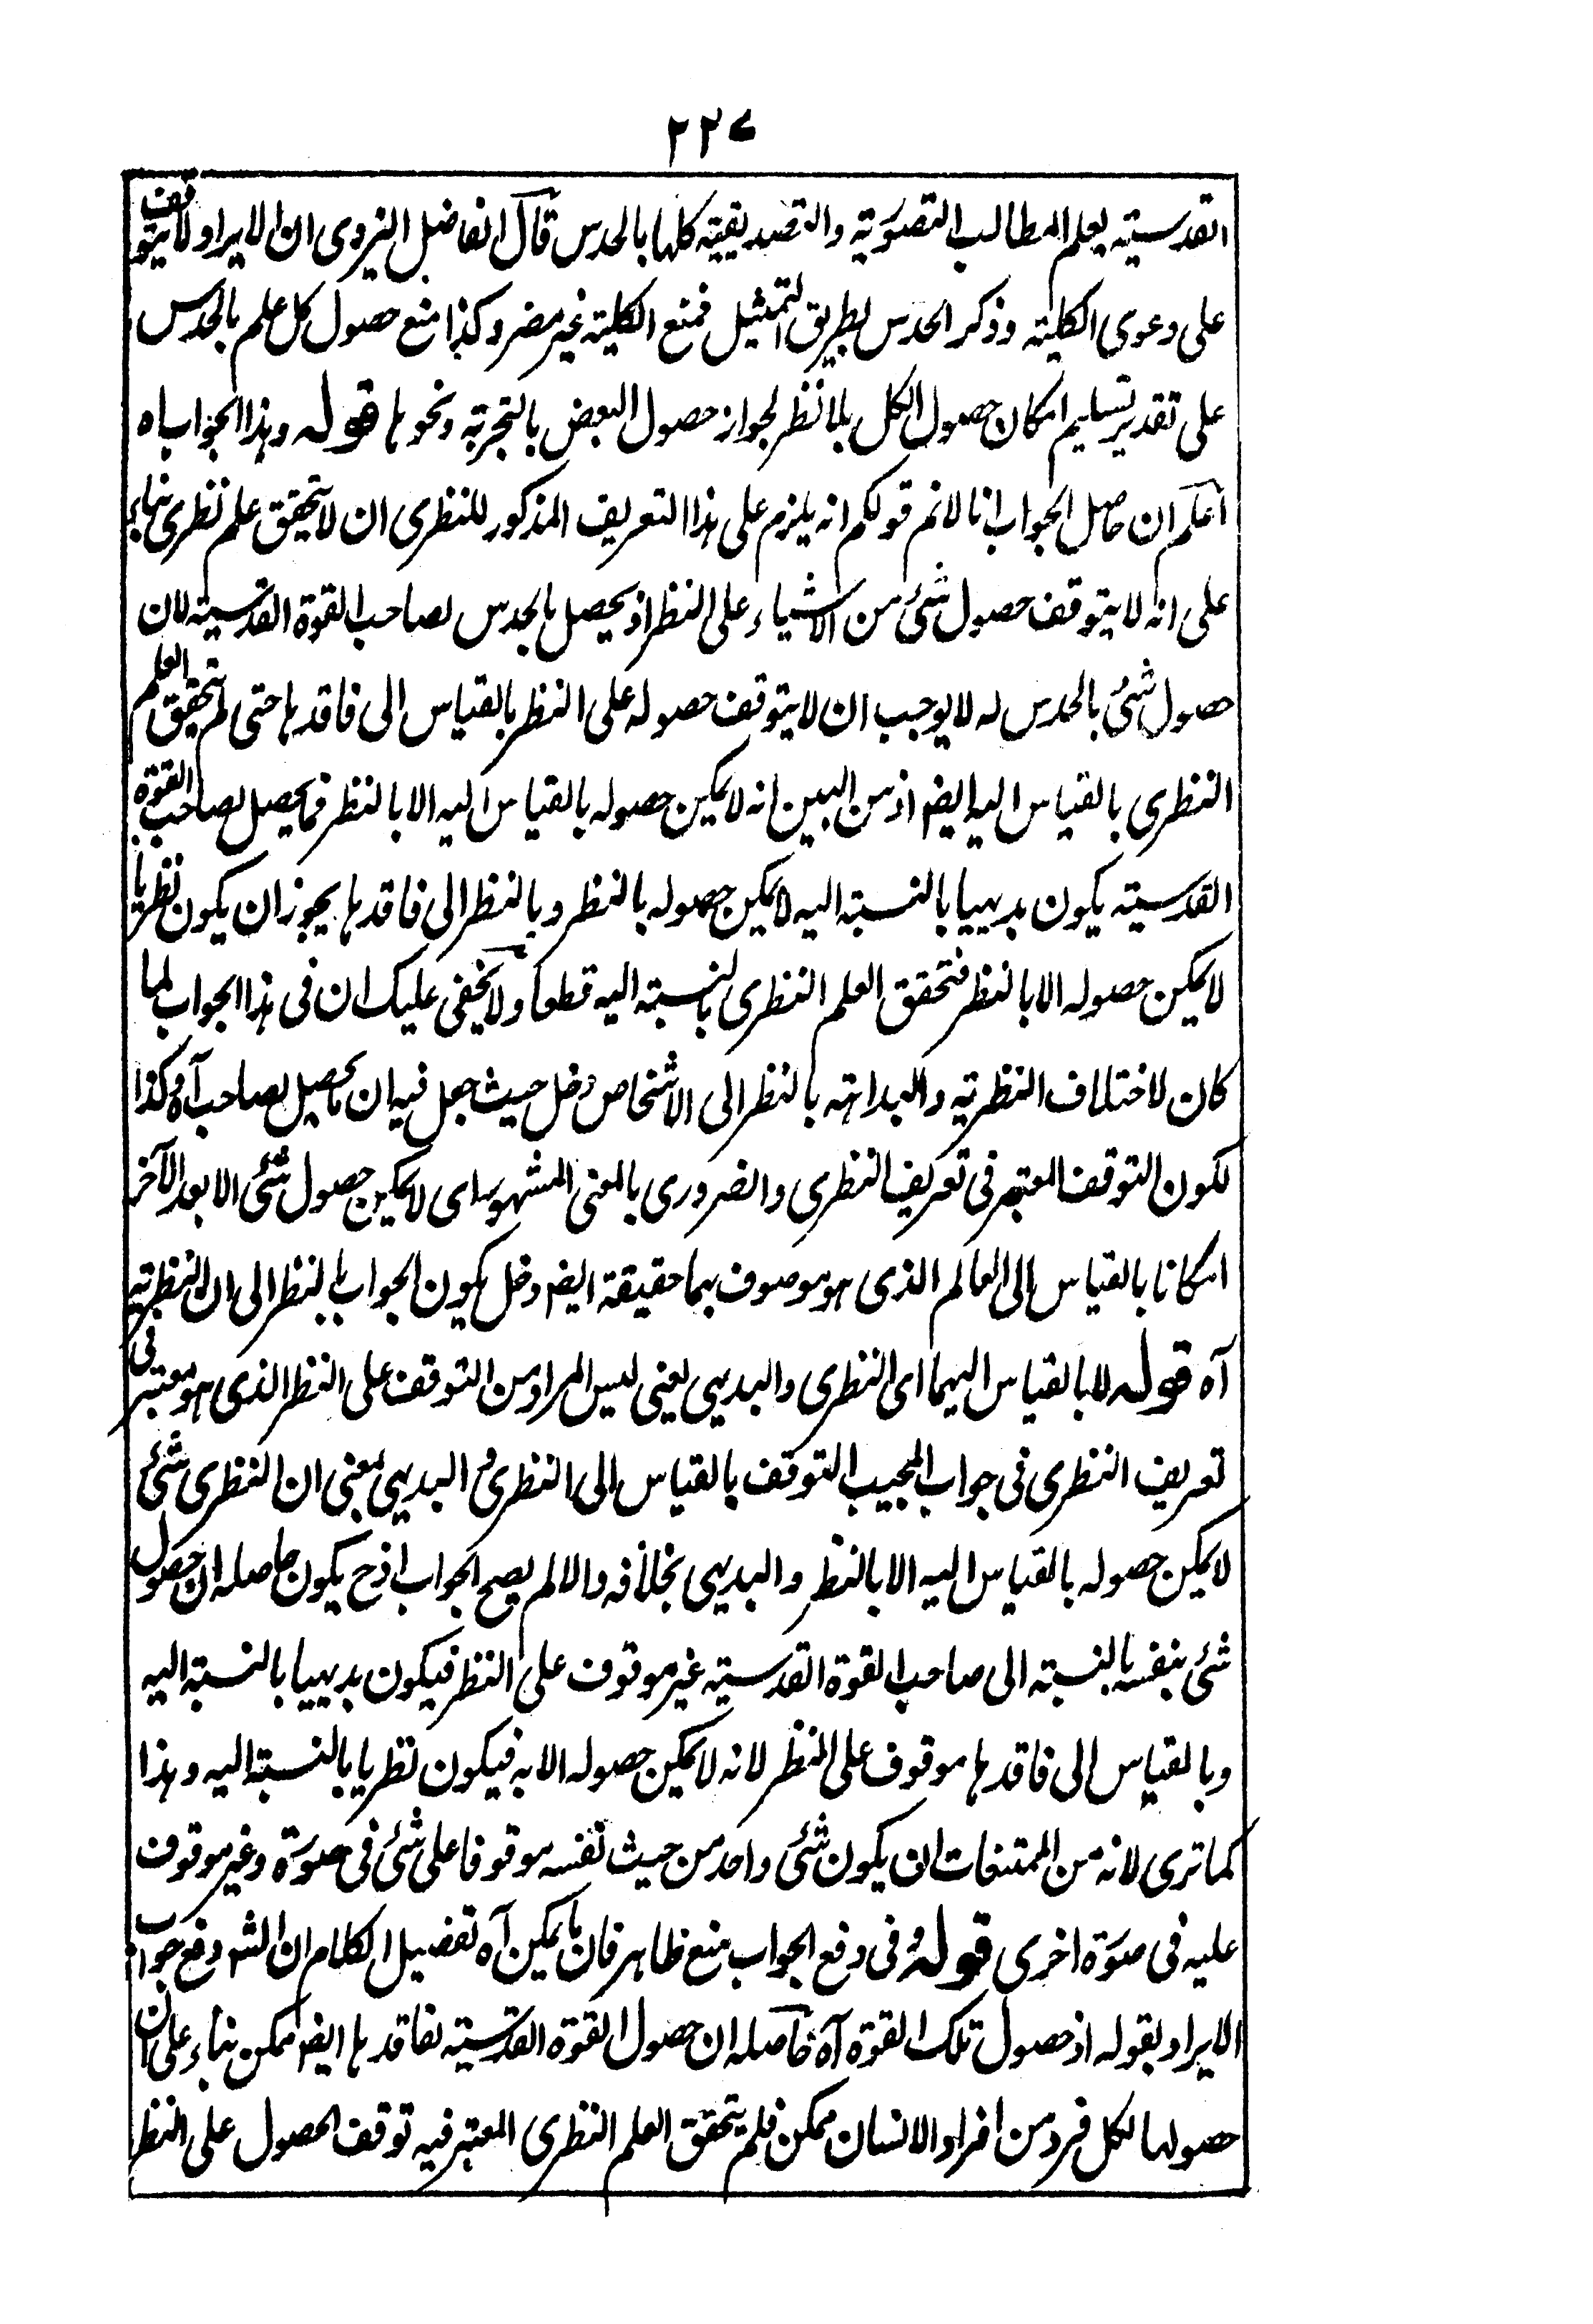 ۲۲۷
القدسيته يعلم المطالب التصورية والتصديقيته كلها بالحدس قال الفاضل اليزدى ان الايراد لا يتوقف
على دعوى الكليته وذكر الحدس بطريق التمثيل فمنع الكليته غير مضر وكذا منع حصول كل علم بالحدس
على تقدير تسليم امكان حصول الكل بلا نظر لجواز حصول البعض بالتجربة ونحوها قوله وهذا الجواب اه
اعلم ان حاصل الجواب انا لا نم قولكم انه يلزم على هذا التعريف المذكور للنظرى ان لا يتحقق علم نظرى بناء
على انه لا يتوقف حصول شئ من الاشياء على النظر اذ يحصل بالحدس لصاحب القوة القدسيته لان
حصول شئ بالحدس له لا يوجب ان لا يتوقف حصوله على النظر بالقياس الى فاقدها حتى لم يتحقق العلم
النظرى بالقياس اليه ايضا اذ من البين انه لا يمكن حصوله بالقياس اليه الا بالنظر فما يحصل لصاحب القوة
القدسيته يكون بديهيا بالنسبته اليه لا يمكن حصوله بالنظر وبالنظر الى فاقدها يجوز ان يكون نظريا
لا يمكن حصوله الا بالنظر فتحقق العلم النظرى بالنسبته اليه قطعا ولا يخفى عليك ان فى هذا الجواب لما
كان لاختلاف النظرية والبداهته بالنظر الى الاشخاص دخل حيث جعل فيه ان ما يحصل لصاحب آه وكذا
لكون التوقف المعتبر فى تعريف النظرى والضرورى بالمعنى المشهور اى لا يمكن حصول شئ الا بعد الآخر
امكانا بالقياس الى العالم الذى هو موصوف بهما حقيقة ايضا دخل يكون الجواب بالنظر الى ان النظرية
آه قوله لا بالقياس اليهما اى النظرى والبديهى يعنى ليس المراد من التوقف على النظر الذى هو معتبر فى
تعريف النظرى فى جواب المجيب التوقف بالقياس الى النظرى و البديهى بمعنى ان النظرى شئ
لا يمكن حصوله بالقياس اليه الا بالنظر والبديهى بخلافه والا لم يصح الجواب اذ ح يكون حاصله ان حصول
شئ بنفسه بالنسبته الى صاحب القوة القدسيته غير موقوف على النظر فيكون بديهيا بالنسبته اليه
وبالقياس الى فاقدها موقوف على النظر لانه لا يمكن حصوله الا به فيكون نظريا بالنسبته اليه وهذا
كما ترى لانه من الممتنعات ان يكون شئ واحد من حيث نفسه موقوفا على شئ فى صورة وغير موقوف
عليه فى صورة اخرى قوله وفى دفع الجواب منع ظاهر فان ما يمكن آه تفصيل الكلام ان الش دفع جواب
الايراد بقوله اذ حصول تلك القوة آه حاصله ان حصول القوة القدسيته لفاقدها ايضا ممكن بناء على ان
حصولها لكل فرد من افراد الانسان ممكن فلم يتحقق العلم النظرى المعتبر فيه توقف الحصول على النظر